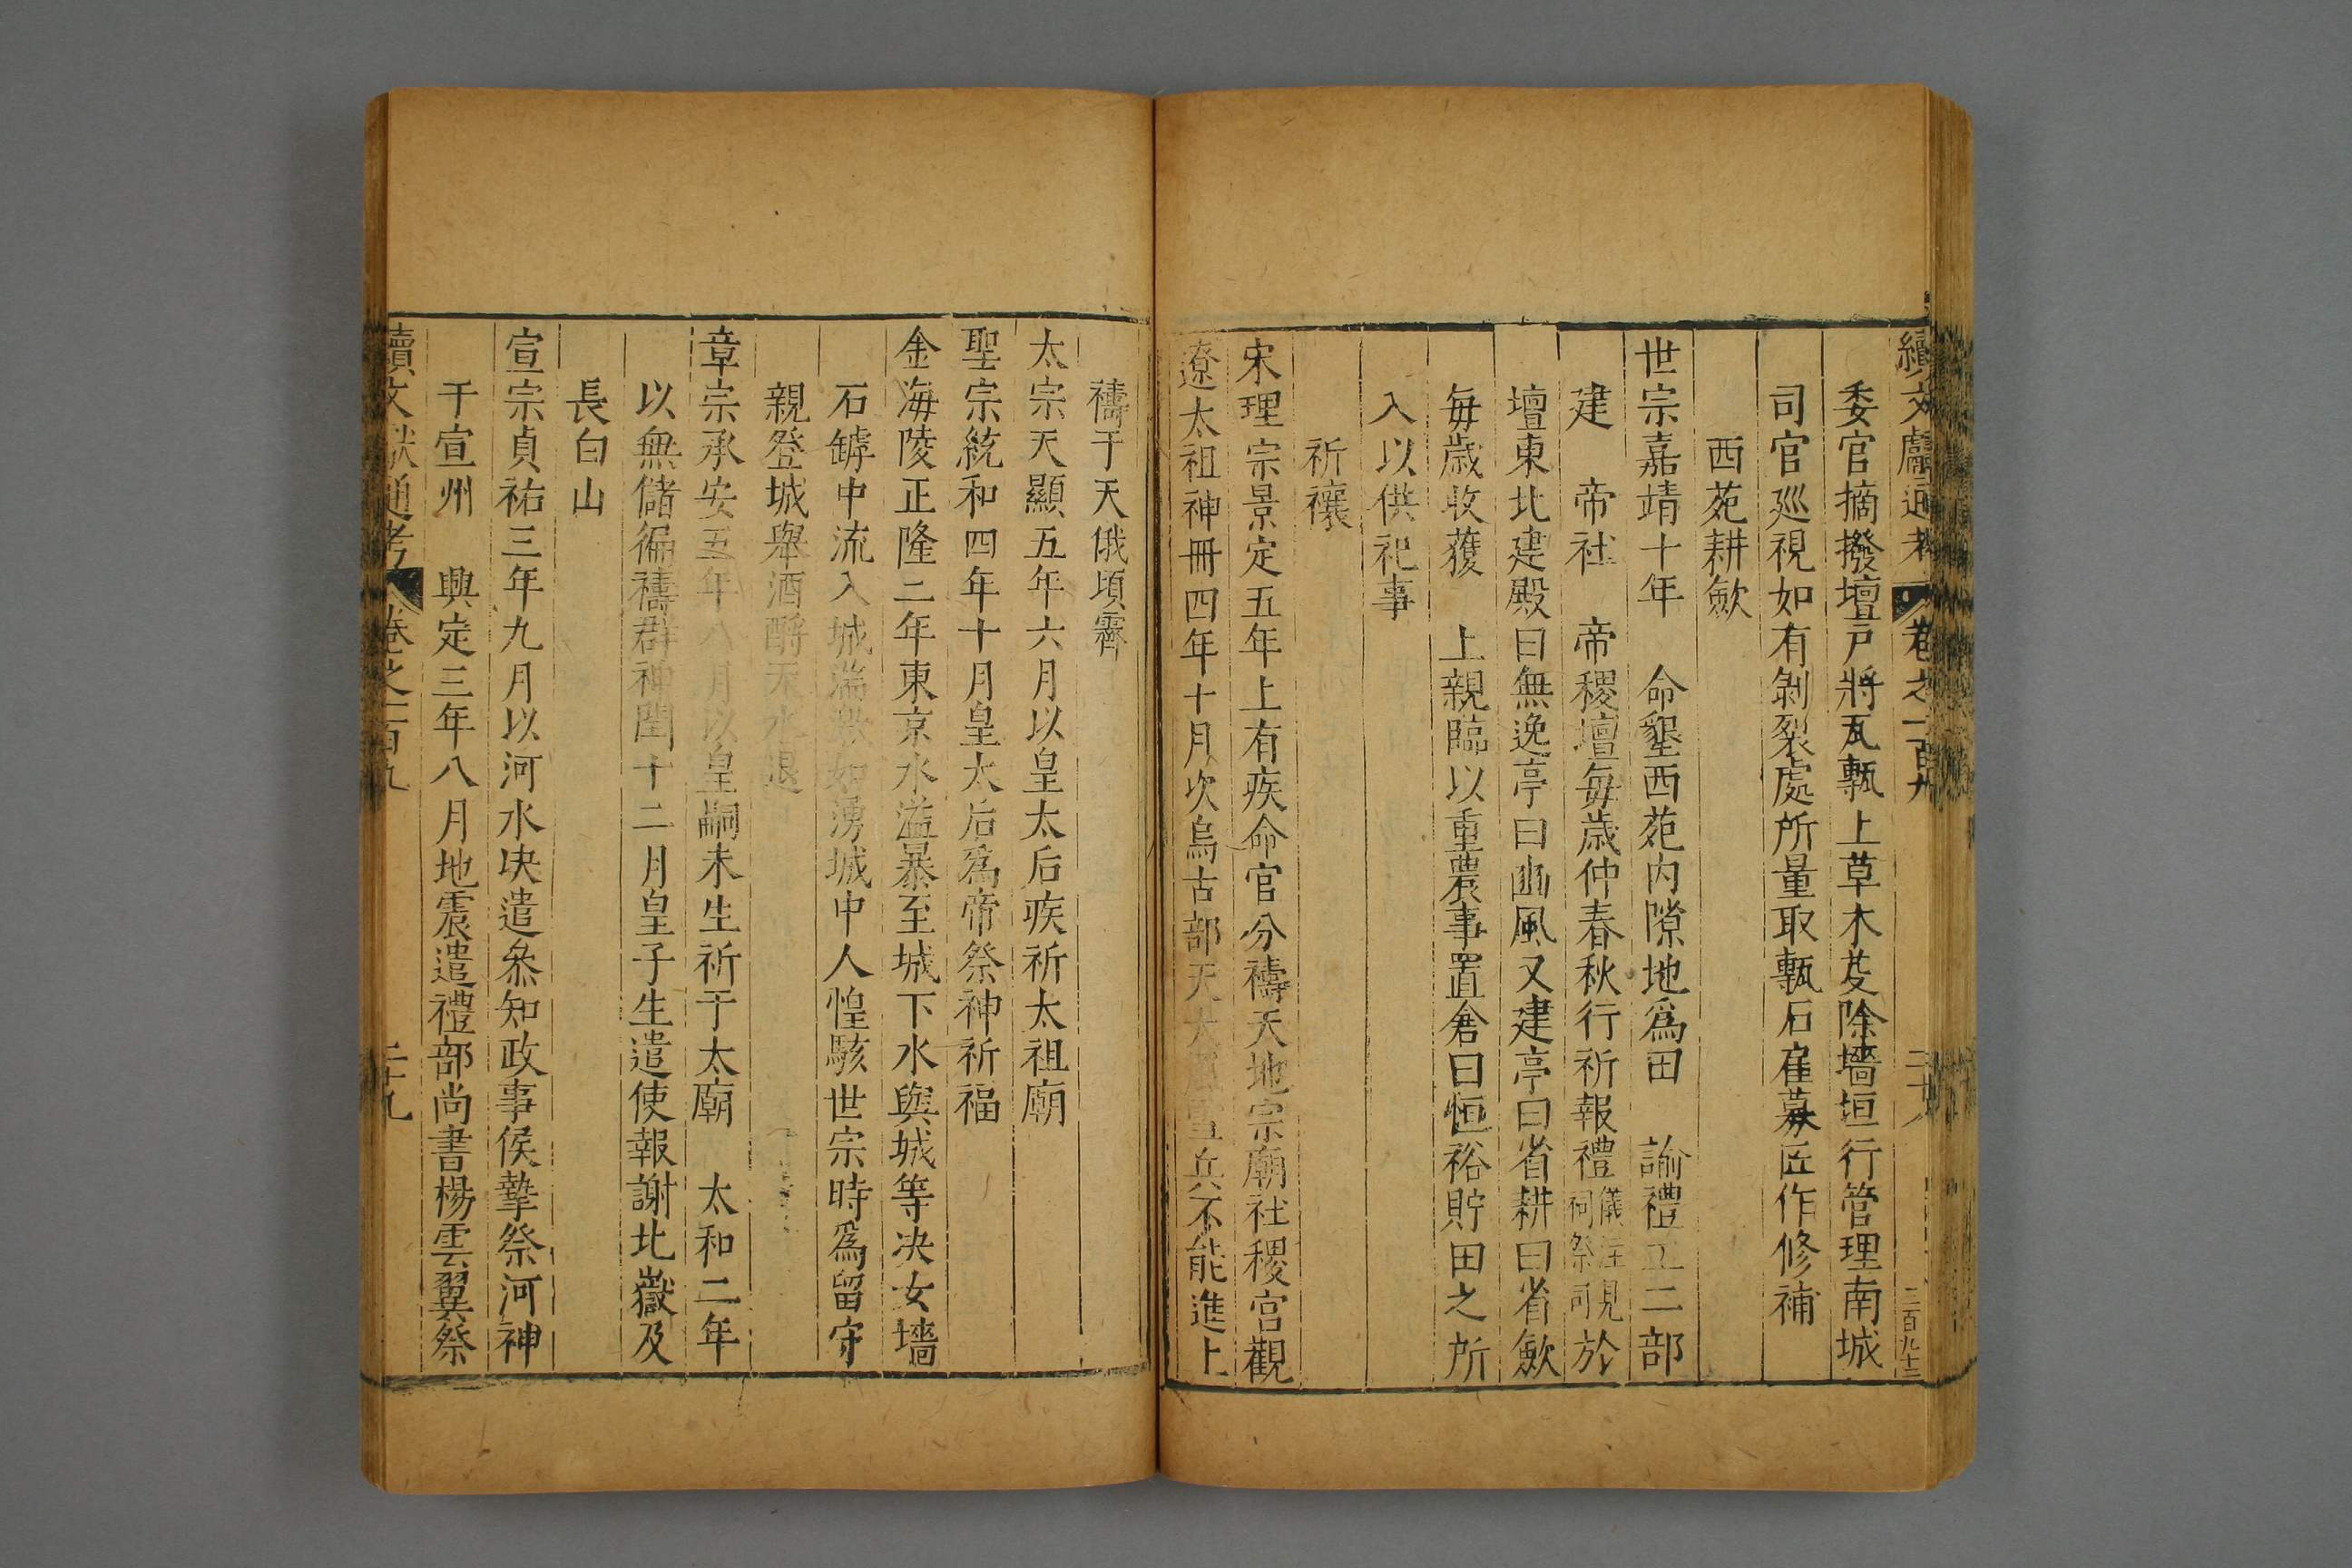 續文獻通考 卷之一百九 二十八 二百九十三
委官摘撥壇戸將瓦甎上草木芟除墻垣行管理南城
司官廵視如有剝裂處所量取甎石雇募匠作修補
西苑耕歛
世宗嘉靖十年 命墾西苑内隙地爲田 諭禮工二部
建 帝社 帝稷壇每歲仲春秋行祈報禮儀注見祠祭司於
壇東北建殿曰無逸亭曰豳風又建亭曰省耕曰省歛
每歲收穫 上親臨以重農事置倉曰恒裕貯田之所
入以供祀事
祈禳
宋理宗景定五年上有疾命官分禱天地宗廟社稷宫觀
遼太祖神冊四年十月次烏古部天大風雪兵不能進上
禱于天俄頃霽
太宗天顯五年六月以皇太后疾祈太祖廟
聖宗統和四年十月皇太后爲帝祭神祈福
金海陵正隆二年東京水溢暴至城下水與城等决女墻
石罅中流入城湍激如湧城中人惶駭世宗時爲留守
親登城舉酒酹天水退
章宗承安五年八月以皇嗣未生祈于太廟 太和二年
以無儲徧禱群神閏十二月皇子生遣使報謝北嶽及
長白山
宣宗貞祐三年九月以河水决遣叅知政事侯摯祭河神
于宣州 興定三年八月地震遣禮部尚書楊雲翼祭
續文獻通考 卷之一百九 二十九